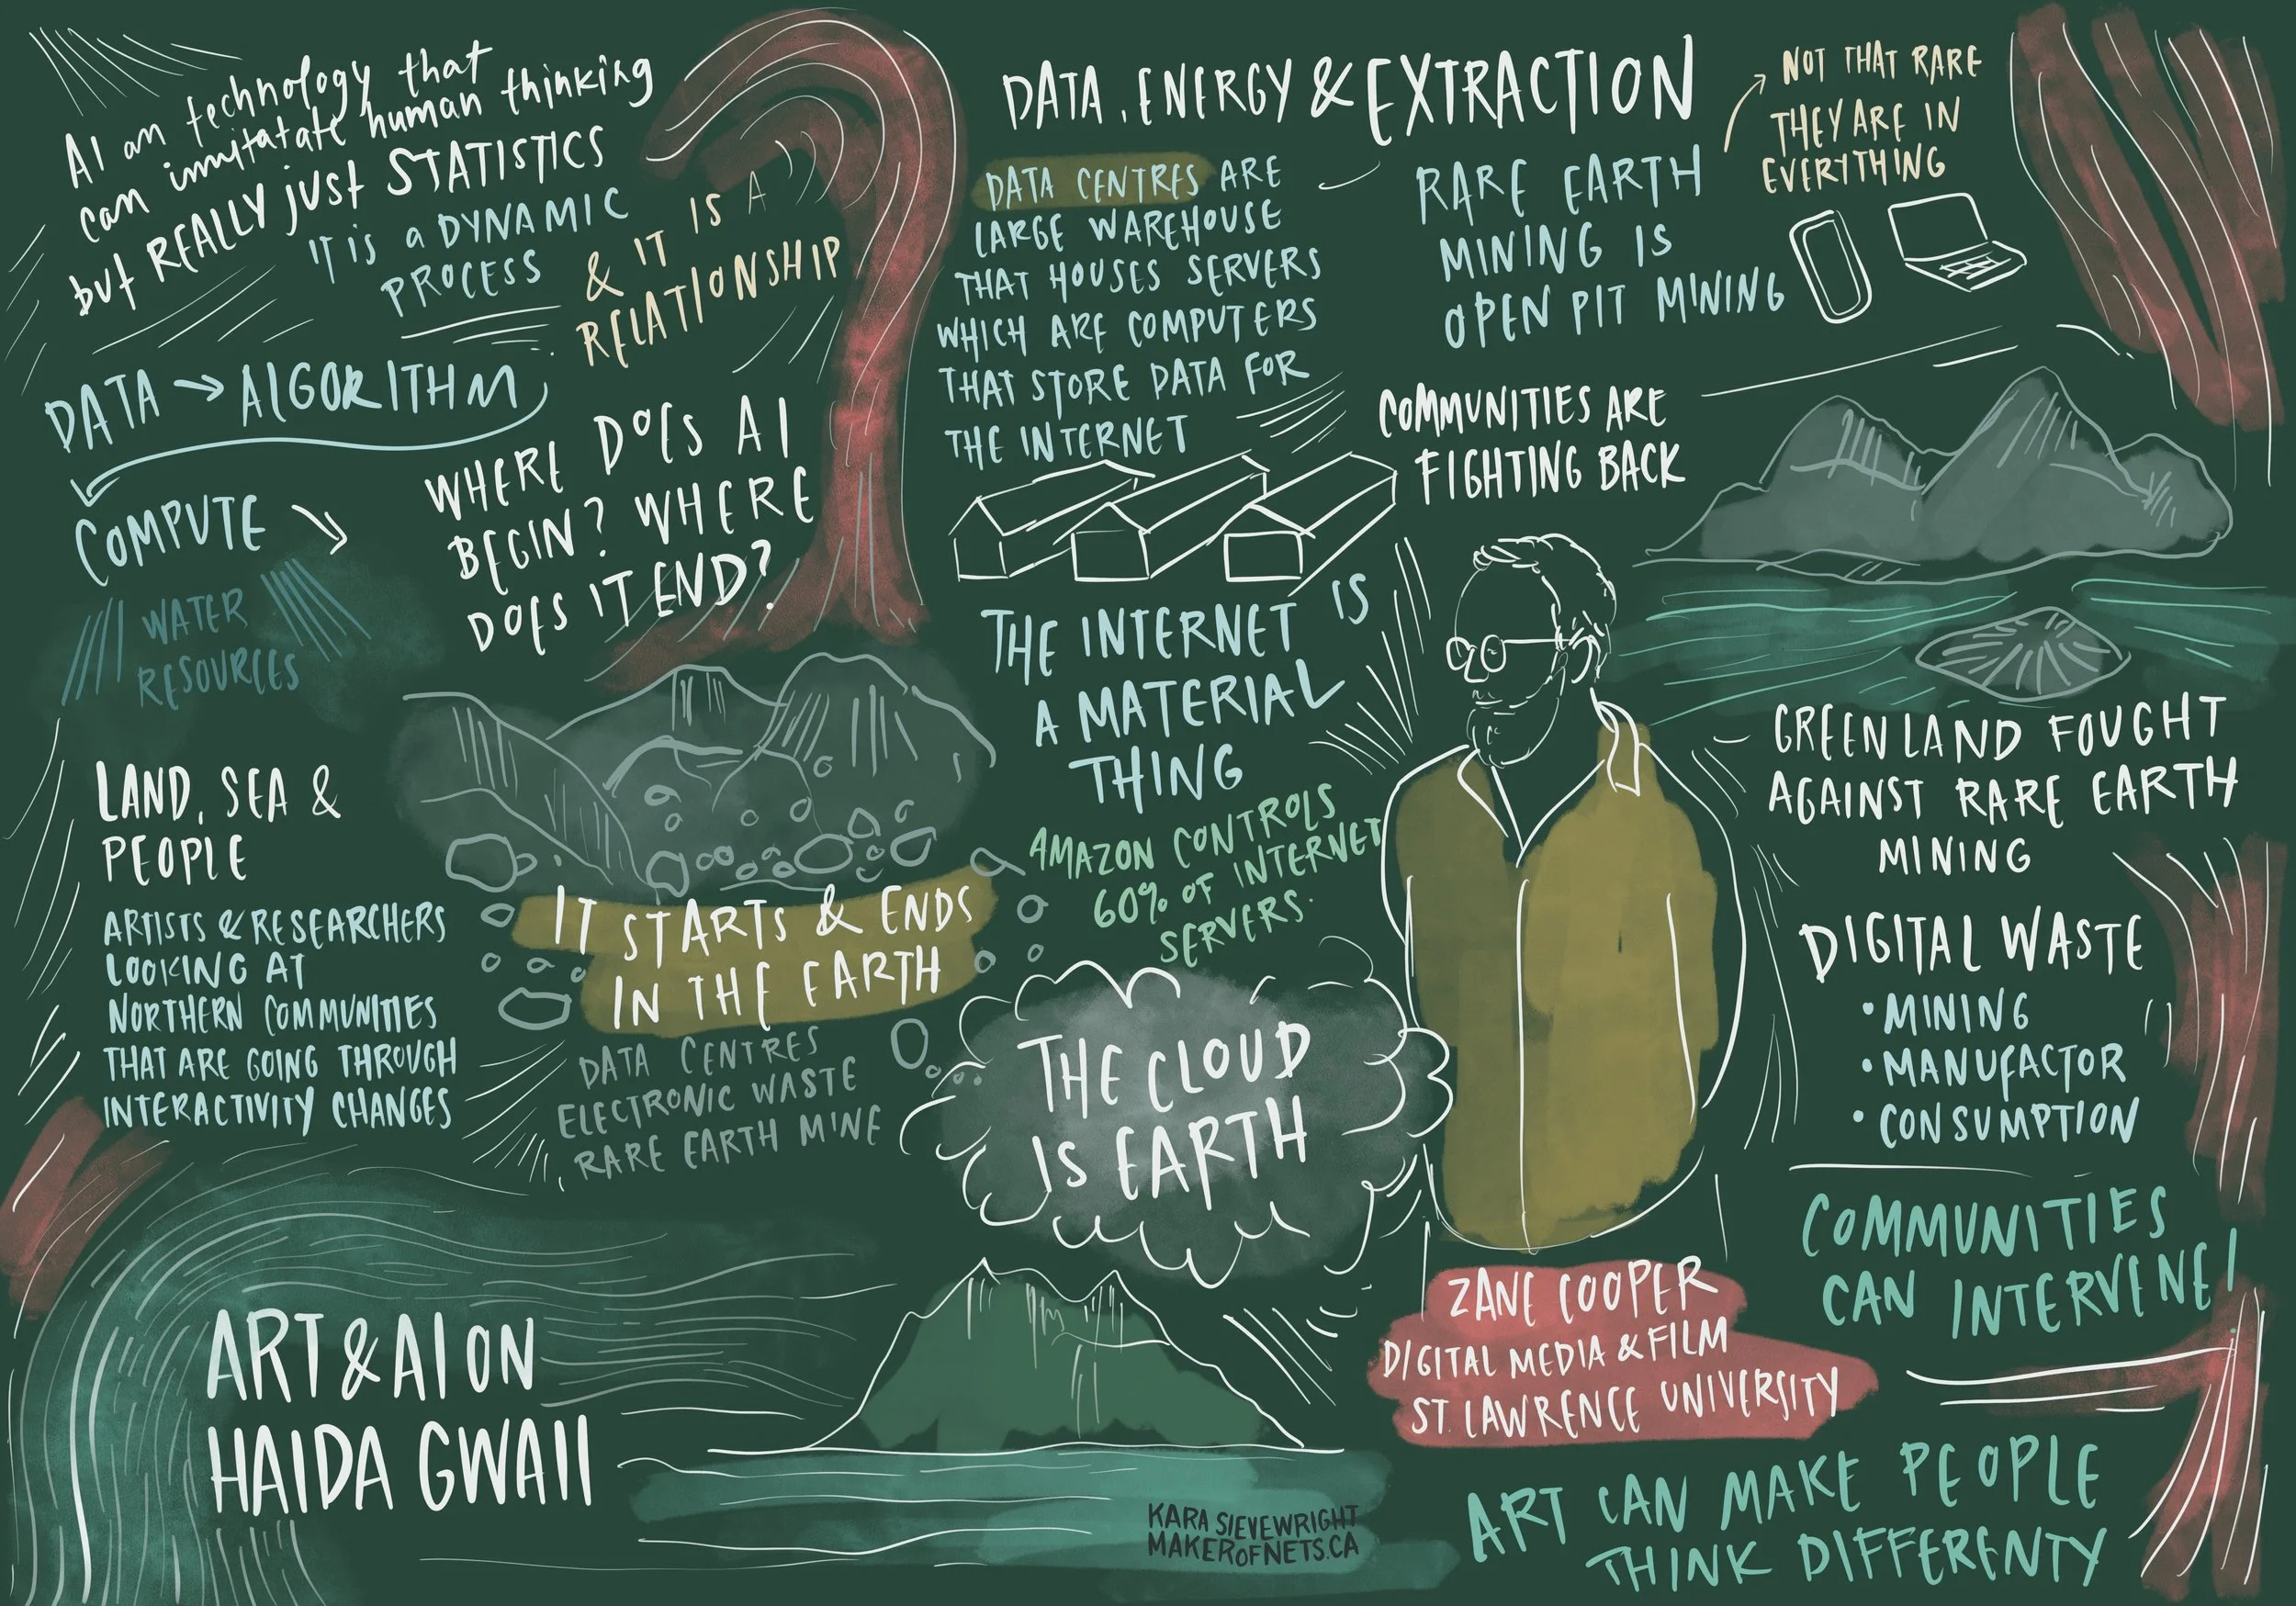 AI an technology that
can immitatate human thinking
but REALLY just STATISTICS
IT is a DYNAMIC
PROCESS
& IT IS A
RELATIONSHIP
DATA → ALGORITHM
COMPUTE →
WATER
RESOURCES
WHERE DOES AI
BEGIN? WHERE
DOES IT END?
LAND, SEA &
PEOPLE
ARTISTS & RESEARCHERS
LOOKING AT
NORTHERN COMMUNITIES
THAT ARE GOING THROUGH
INTERACTIVITY CHANGES
IT STARTS & ENDS
IN THE EARTH
DATA CENTRES
ELECTRONIC WASTE
RARE EARTH MINE
ART & AI ON
HAIDA GWAII
DATA, ENERGY & EXTRACTION
DATA CENTRES ARE
LARGE WAREHOUSE
THAT HOUSES SERVERS
WHICH ARE COMPUTERS
THAT STORE DATA FOR
THE INTERNET
THE INTERNET IS
A MATERIAL
THING
AMAZON CONTROLS
60% OF INTERNET
SERVERS.
THE CLOUD
IS EARTH
KARA SIEVEWRIGHT
MAKEROFNETS.CA
RARE EARTH
MINING IS
OPEN PIT MINING
NOT THAT RARE
THEY ARE IN
EVERYTHING
COMMUNITIES ARE
FIGHTING BACK
GREENLAND FOUGHT
AGAINST RARE EARTH
MINING
DIGITAL WASTE
• MINING
• MANUFACTOR
• CONSUMPTION
COMMUNITIES
CAN INTERVENE!
ZANE COOPER
DIGITAL MEDIA & FILM
ST. LAWRENCE UNIVERSITY
ART CAN MAKE PEOPLE
THINK DIFFERENTY